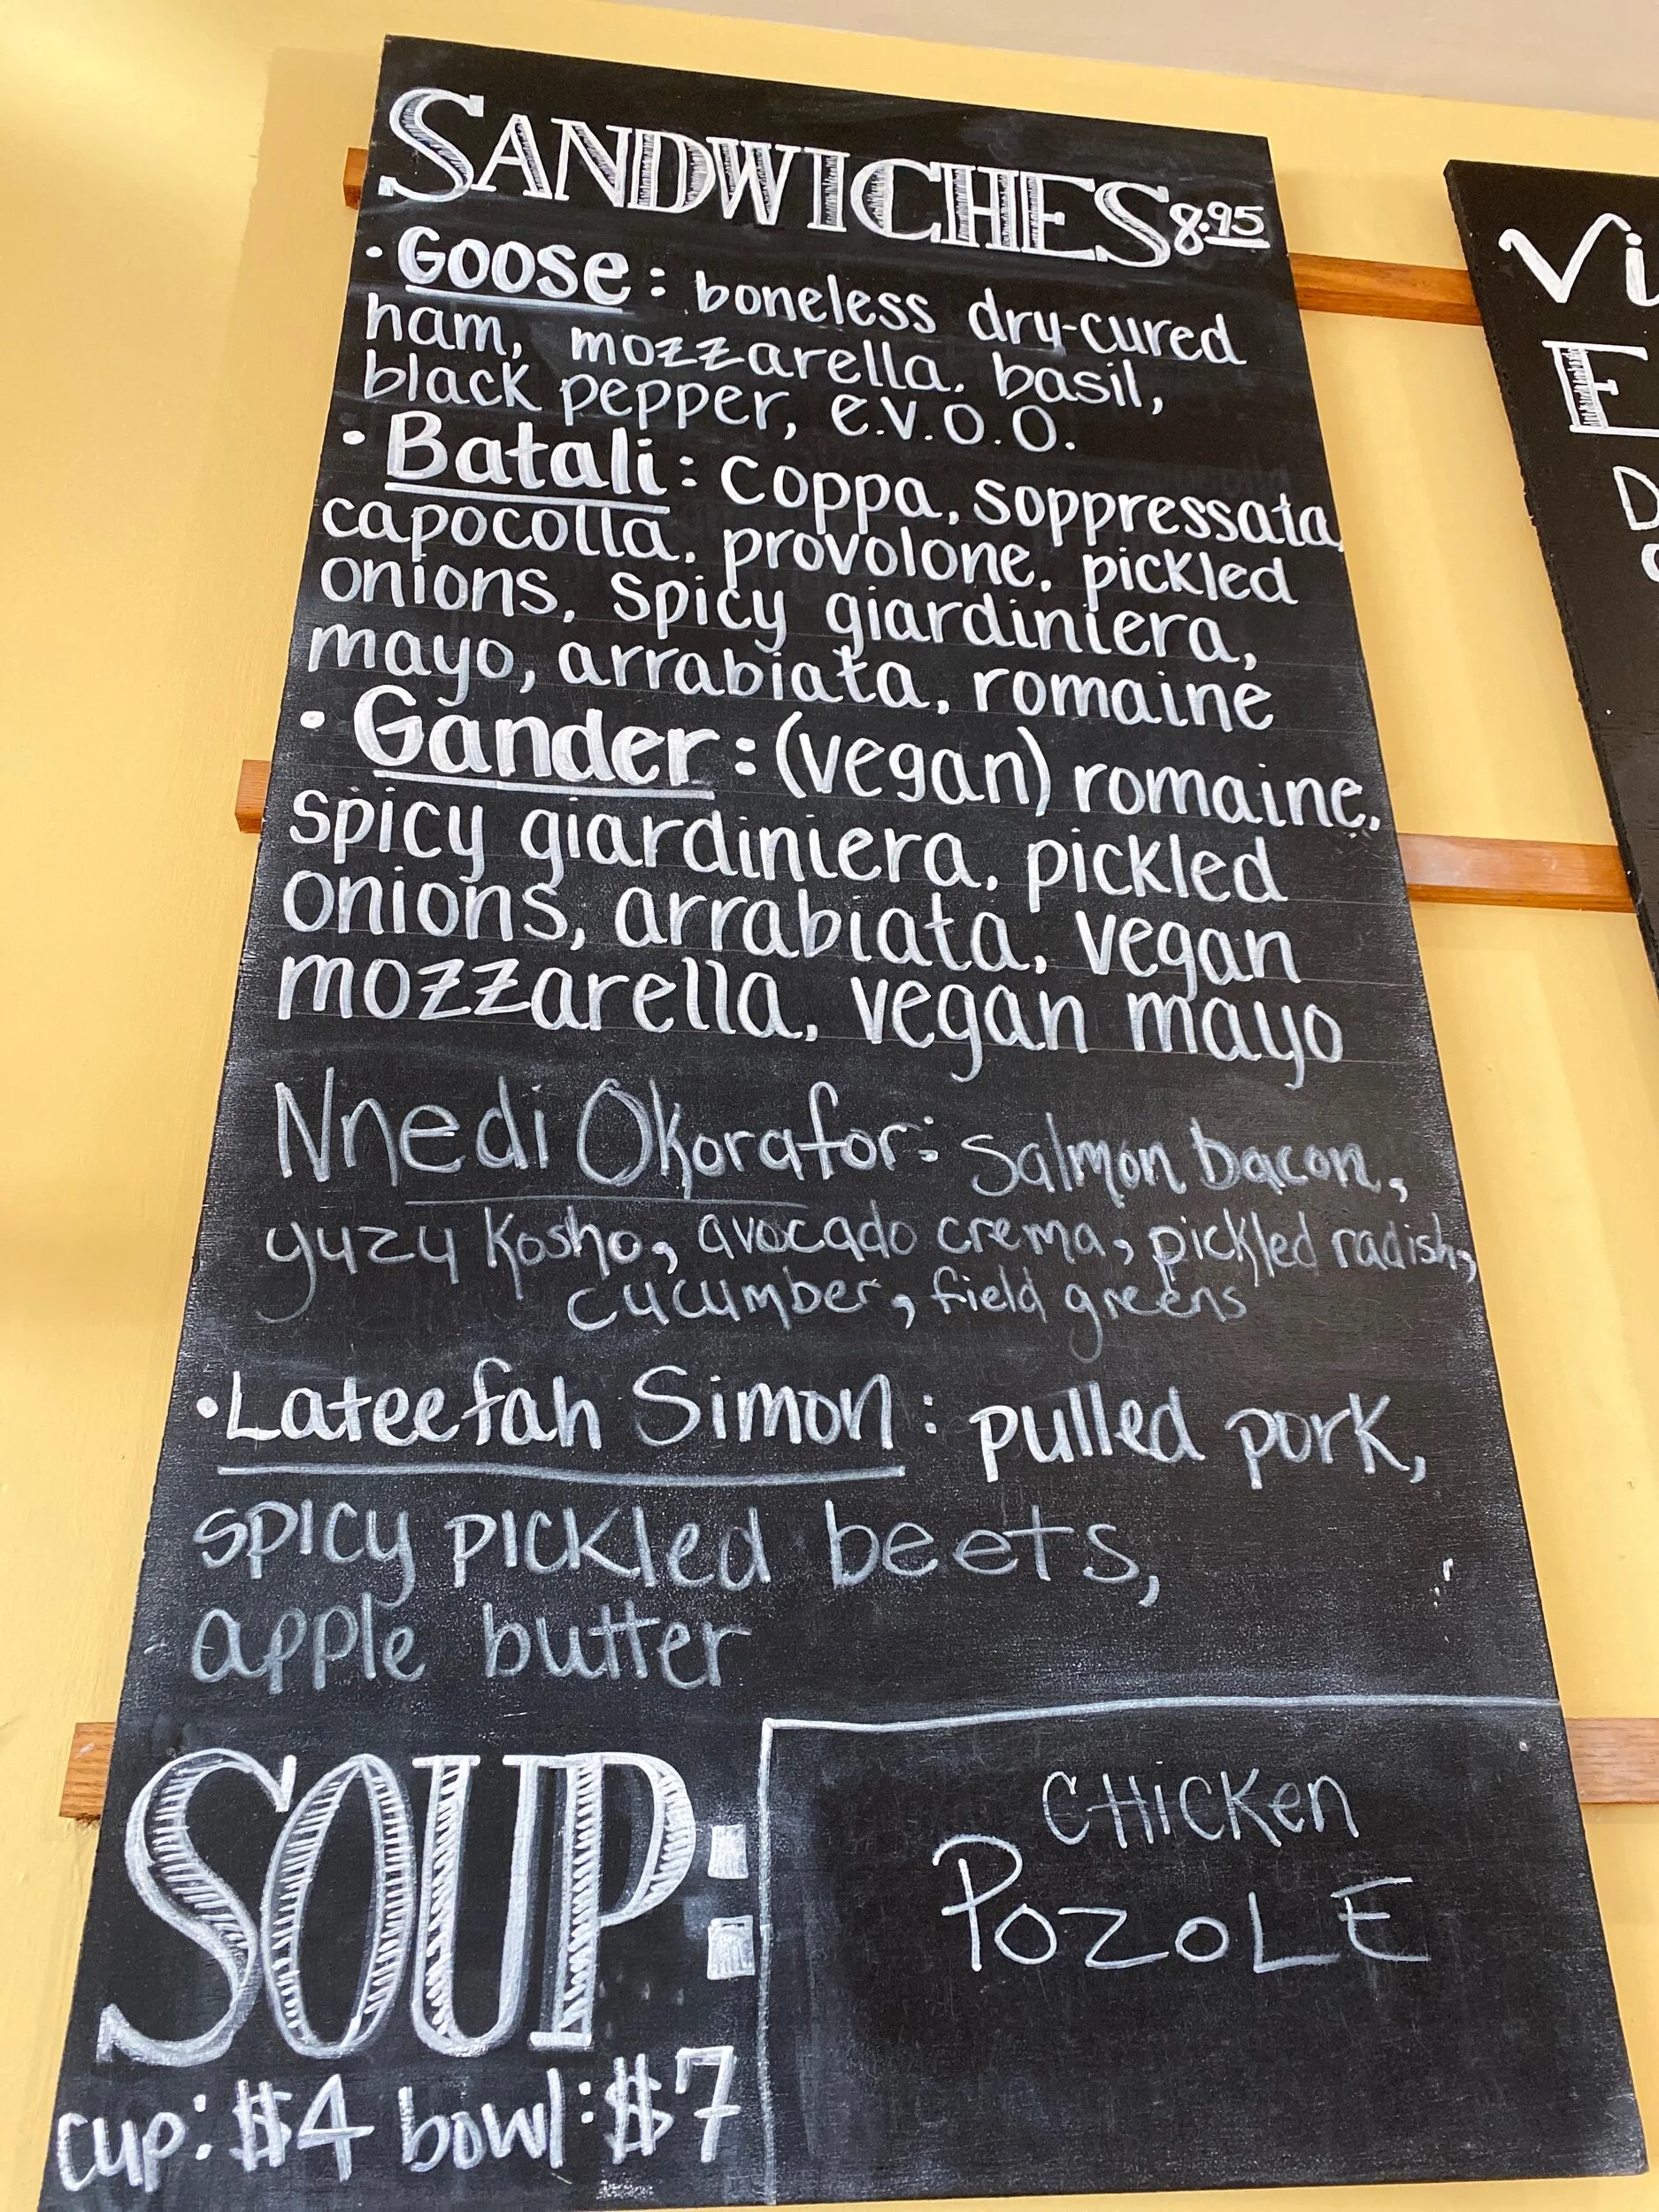 SANDWICHES 8.95
• Goose: boneless dry-cured
ham, mozzarella. basil,
black pepper, e.v.o.o.
• Batali: coppa, soppressata,
capocolla, provolone, pickled
onions, spicy giardiniera,
mayo, arrabiata, romaine
• Gander: (vegan) romaine,
spicy giardiniera, pickled
onions, arrabiata, vegan
mozzarella, vegan mayo
Nnedi Okorafor: Salmon bacon,
yuzu kosho, avocado crema, pickled radish,
cucumber, field greens
• Lateefah Simon: pulled pork,
spicy pickled beets,
apple butter
SOUP:
CHiCKen
POZOLE
cup: $4 bowl: $7
Vi
E
D